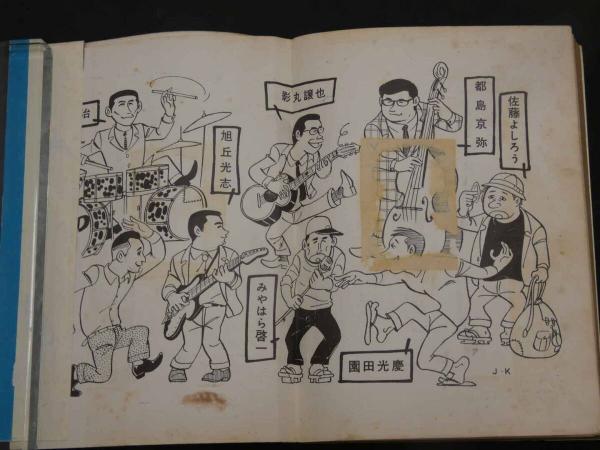 治
旭丘光志
彰丸譲也
都島京弥
佐藤よしろう
みやはら啓一
園田光慶
J・K